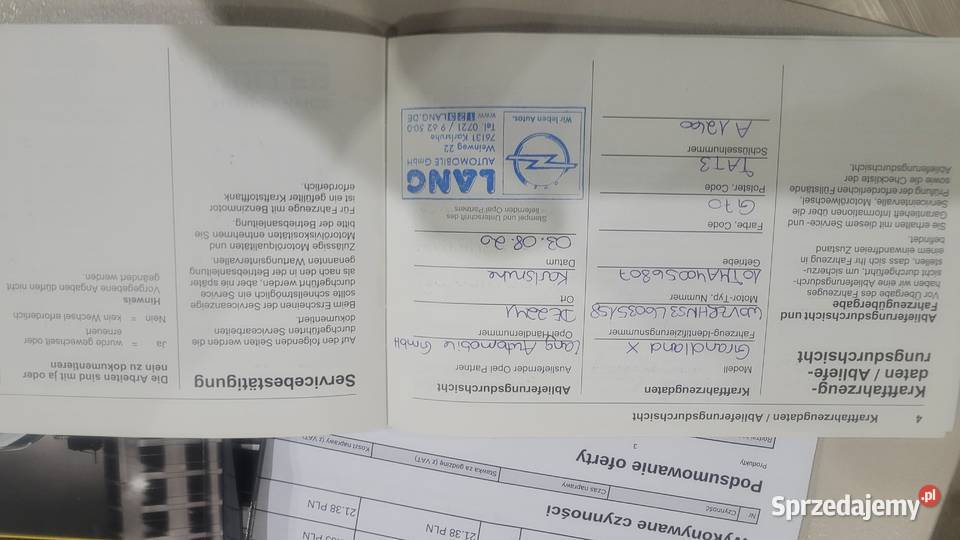 4 Kraftfahrzeugdaten / Ablieferungsdurchsicht
Kraftfahrzeug-
daten / Abliefe-
rungsdurchsicht
Ablieferungsdurchsicht und
Fahrzeugübergabe
Vor Übergabe des Fahrzeuges
haben wir eine Ablieferungsdurch-
sicht durchgeführt, um sicherzu-
stellen, dass sich Ihr Fahrzeug in
einem einwandfreien Zustand
befindet.
Sie erhalten mit diesem Service- und
Garantieheft Informationen über die
Serviceintervalle, Motorölwechsel,
Prüfung der erforderlichen Füllstände
sowie die Checkliste der
Ablieferungsdurchsicht.
Kraftfahrzeugdaten
Modell
Grandland X
Fahrzeug-Identifizierungsnummer
Motor-Typ, Nummer
Getriebe
Farbe, Code
G70
Polster, Code
TAT3
Schlüsselnummer
A1260
Ablieferungsdurchsicht
Ausliefernder Opel Partner
Lang Automobile GmbH
Opel-Händlernummer
Ort
Karlsruhe
Datum
03.08.20
Stempel und Unterschrift des
liefernden Opel Partners
LANG
AUTOMOBILE GmbH
Weinweg 22
76131 Karlsruhe
Tel. 0721 / 9 62 50 0
Wir leben Autos.
Servicebestätigung
Auf den folgenden Seiten werden die
durchgeführten Servicearbeiten
dokumentiert.
Beim Erscheinen der Serviceanzeige
sollte schnellstmöglich ein Service
durchgeführt werden, aber nie später
als nach den in der Betriebsanleitung
genannten Wartungsintervallen.
Zulässige Motorölqualitäten und
Motorölviskositäten entnehmen Sie
bitte der Betriebsanleitung.
Für Fahrzeuge mit Benzinmotor
ist ein gefüllter Kraftstofftank
erforderlich.
Die Arbeiten sind mit ja oder
nein zu dokumentieren
Ja = wurde gewechselt oder
erneuert
Nein = kein Wechsel erforderlich
Hinweis
Vorgegebene Angaben dürfen nicht
geändert werden.
Produkty
3
Podsumowanie oferty
Koszt naprawy (z VAT)
Stawka za godzinę (z VAT)
Czas naprawy
Czynność
Nr
ykonywane czynności
21.38 PLN
21.38 PLN
PLN
PLN
Sprzedajemy.pl